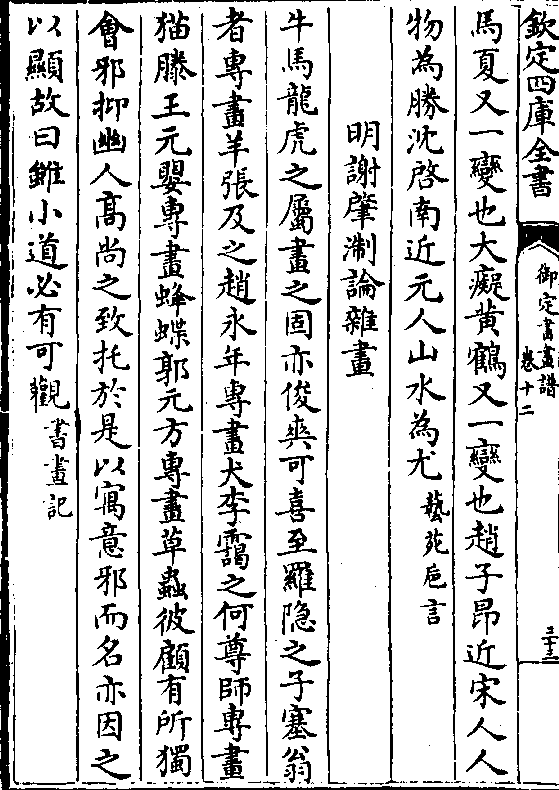 欽定四庫全書
御定書畫譜
卷十二
三十三
馬夏又一變也大癡黃鶴又一變也趙子昂近宋人人
物為勝沈啓南近元人山水為尤藝苑巵言
明謝肇淛論雜畫
牛馬龍虎之屬畫之固亦俊爽可喜至羅隐之子塞翁
者專畫羊張及之趙永年專畫犬李靄之何尊師專畫
猫滕王元嬰專畫蜂蝶郭元方專畫草蟲彼顧有所獨
會邪抑幽人髙尚之致托於是以寓意邪而名亦因之
以顯故曰雖小道必有可觀書畫記